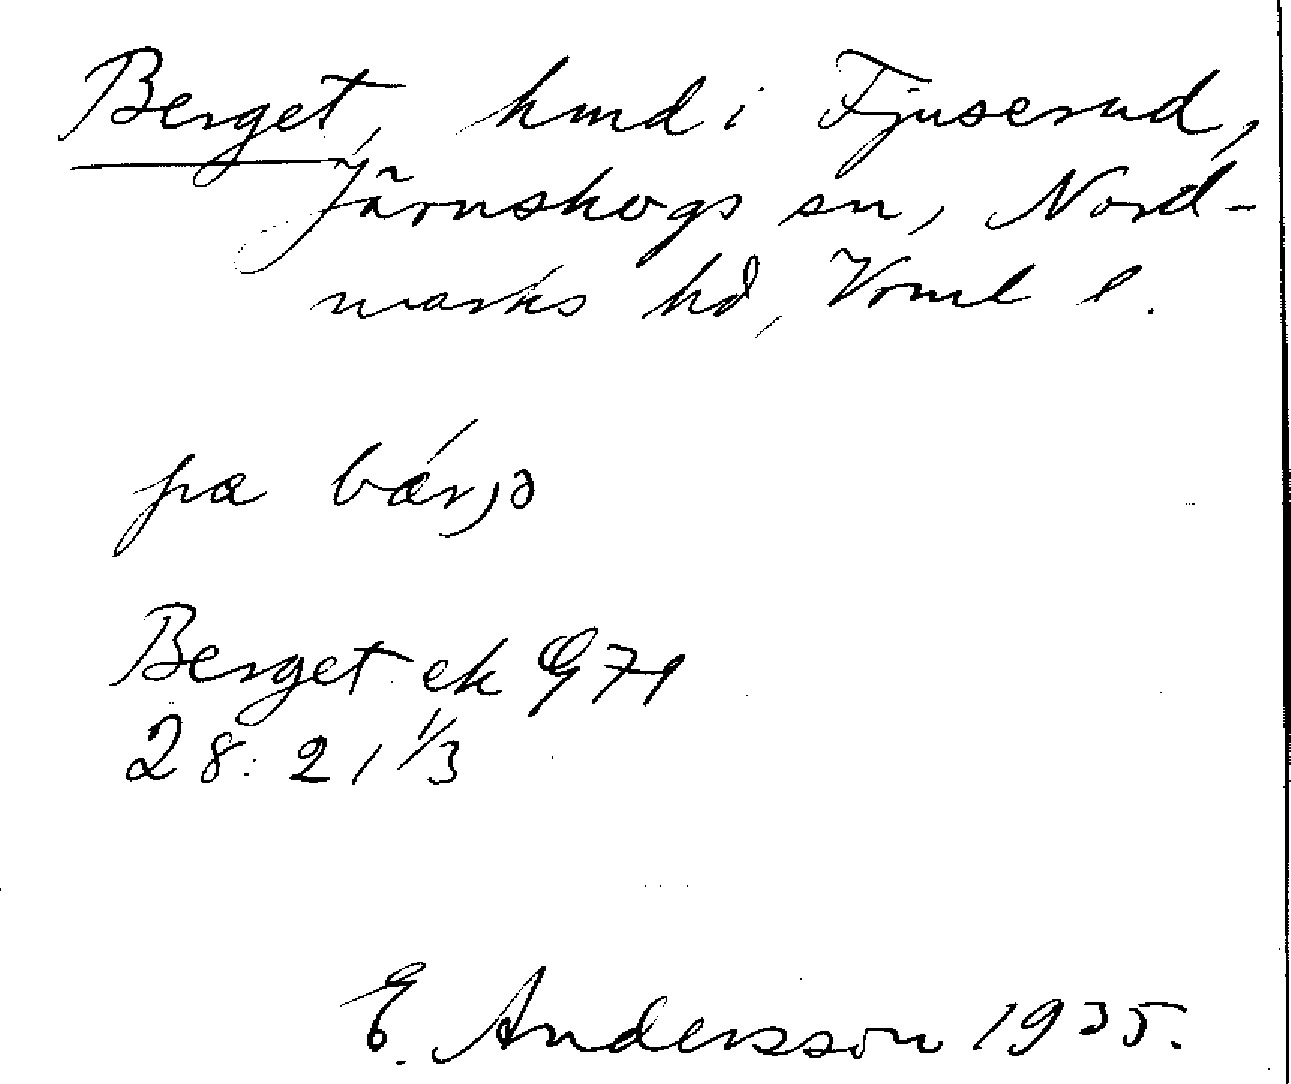 Berget, hmd i Fjuserud,
Järnskogs sn, Nord-
marks hd, Vrml l.
pæ bǽr,ə
Berget ek G 71
28: 21 1/3
E. Andersson 1935.